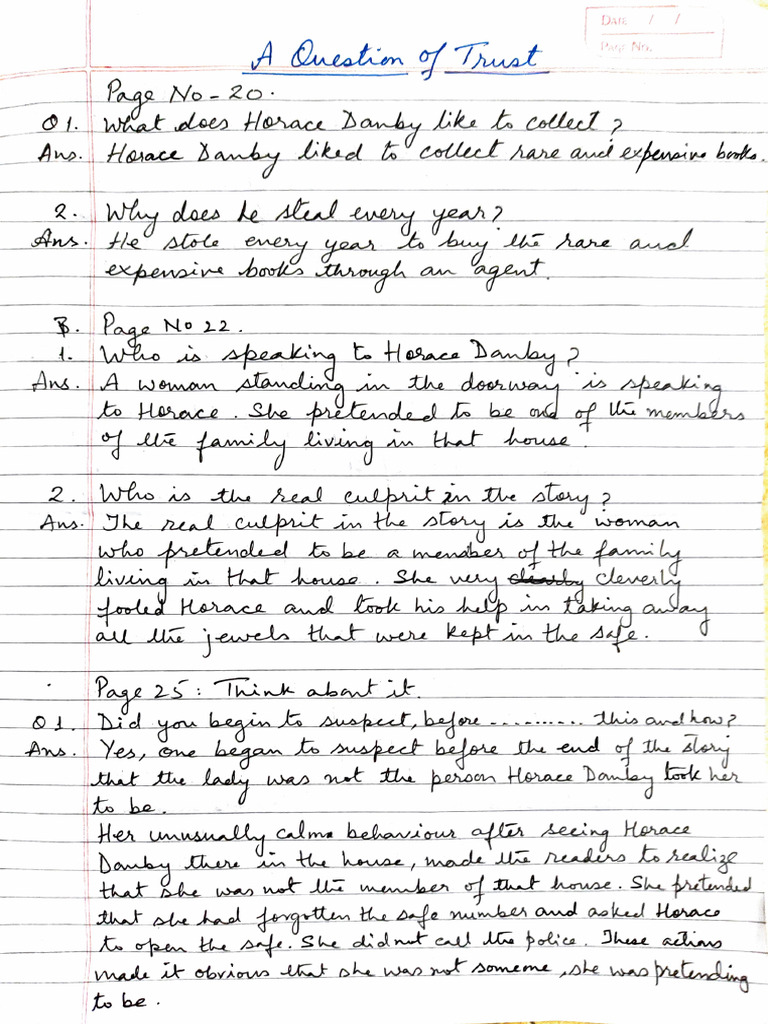 Date / /
Page No.
A Question of Trust
Page No - 20.
Q1. What does Horace Danby like to collect?
Ans. Horace Danby liked to collect rare and expensive books.
2. Why does he steal every year?
Ans. He stole every year to buy the rare and
expensive books through an agent.
B. Page No 22.
1. Who is speaking to Horace Danby?
Ans. A woman standing in the doorway is speaking
to Horace. She pretended to be one of the members
of the family living in that house.
2. Who is the real culprit in the story?
Ans. The real culprit in the story is the woman
who pretended to be a member of the family
living in that house. She very cleverly
fooled Horace and took his help in taking away
all the jewels that were kept in the safe.
Page 25: Think about it.
Q1. Did you begin to suspect, before .......... this and how?
Ans. Yes, one began to suspect before the end of the story
that the lady was not the person Horace Danby took her
to be.
Her unusually calm behaviour after seeing Horace
Danby there in the house, made the readers to realize
that she was not the member of that house. She pretended
that she had forgotten the safe number and asked Horace
to open the safe. She did not call the police. These actions
made it obvious that she was not someone, she was pretending
to be.